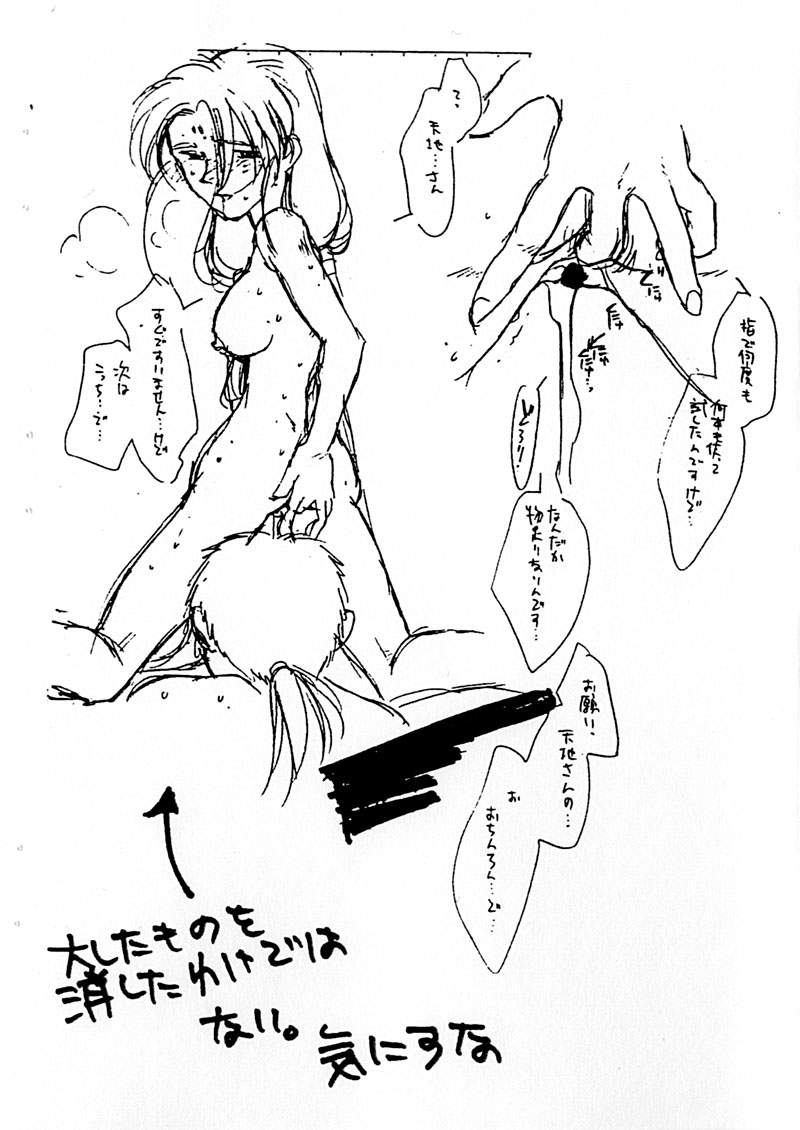 て、
天地…さん
指で何度も
何本も使って
試したんですけど…
とろり!
なんだか
物足りないんです…
すぐですいません…けど
次は
こっち…で…
お願い、
天地さんの…
お
おちんちん…で…
大したものを
消したわけでは
ない。
気にすな